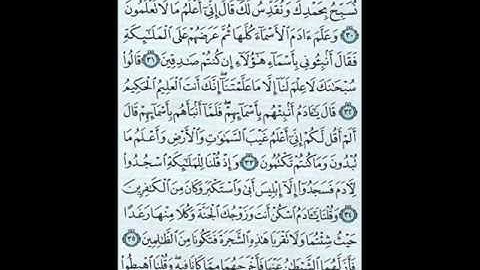 نُسَبِّحُ بِحَمْدِكَ وَنُقَدِّسُ لَكَ قَالَ إِنِّىٓ أَعْلَمُ مَا لَا تَعْلَمُونَ
٣٠ وَعَلَّمَ ءَادَمَ ٱلْأَسْمَآءَ كُلَّهَا ثُمَّ عَرَضَهُمْ عَلَى ٱلْمَلَٰٓئِكَةِ
فَقَالَ أَنۢبِـُٔونِى بِأَسْمَآءِ هَٰٓؤُلَآءِ إِن كُنتُمْ صَٰدِقِينَ ٣١ قَالُوا۟
سُبْحَٰنَكَ لَا عِلْمَ لَنَآ إِلَّا مَا عَلَّمْتَنَآ إِنَّكَ أَنتَ ٱلْعَلِيمُ ٱلْحَكِيمُ
٣٢ قَالَ يَٰٓـَٔادَمُ أَنۢبِئْهُم بِأَسْمَآئِهِمْ فَلَمَّآ أَنۢبَأَهُم بِأَسْمَآئِهِمْ قَالَ
أَلَمْ أَقُل لَّكُمْ إِنِّىٓ أَعْلَمُ غَيْبَ ٱلسَّمَٰوَٰتِ وَٱلْأَرْضِ وَأَعْلَمُ مَا
تُبْدُونَ وَمَا كُنتُمْ تَكْتُمُونَ ٣٣ وَإِذْ قُلْنَا لِلْمَلَٰٓئِكَةِ ٱسْجُدُوا۟
لِـَٔادَمَ فَسَجَدُوٓا۟ إِلَّآ إِبْلِيسَ أَبَىٰ وَٱسْتَكْبَرَ وَكَانَ مِنَ ٱلْكَٰفِرِينَ
٣٤ وَقُلْنَا يَٰٓـَٔادَمُ ٱسْكُنْ أَنتَ وَزَوْجُكَ ٱلْجَنَّةَ وَكُلَا مِنْهَا رَغَدًا
حَيْثُ شِئْتُمَا وَلَا تَقْرَبَا هَٰذِهِ ٱلشَّجَرَةَ فَتَكُونَا مِنَ ٱلظَّٰلِمِينَ ٣٥
فَأَزَلَّهُمَا ٱلشَّيْطَٰنُ عَنْهَا فَأَخْرَجَهُمَا مِمَّا كَانَا فِيهِ وَقُلْنَا ٱهْبِطُوا۟